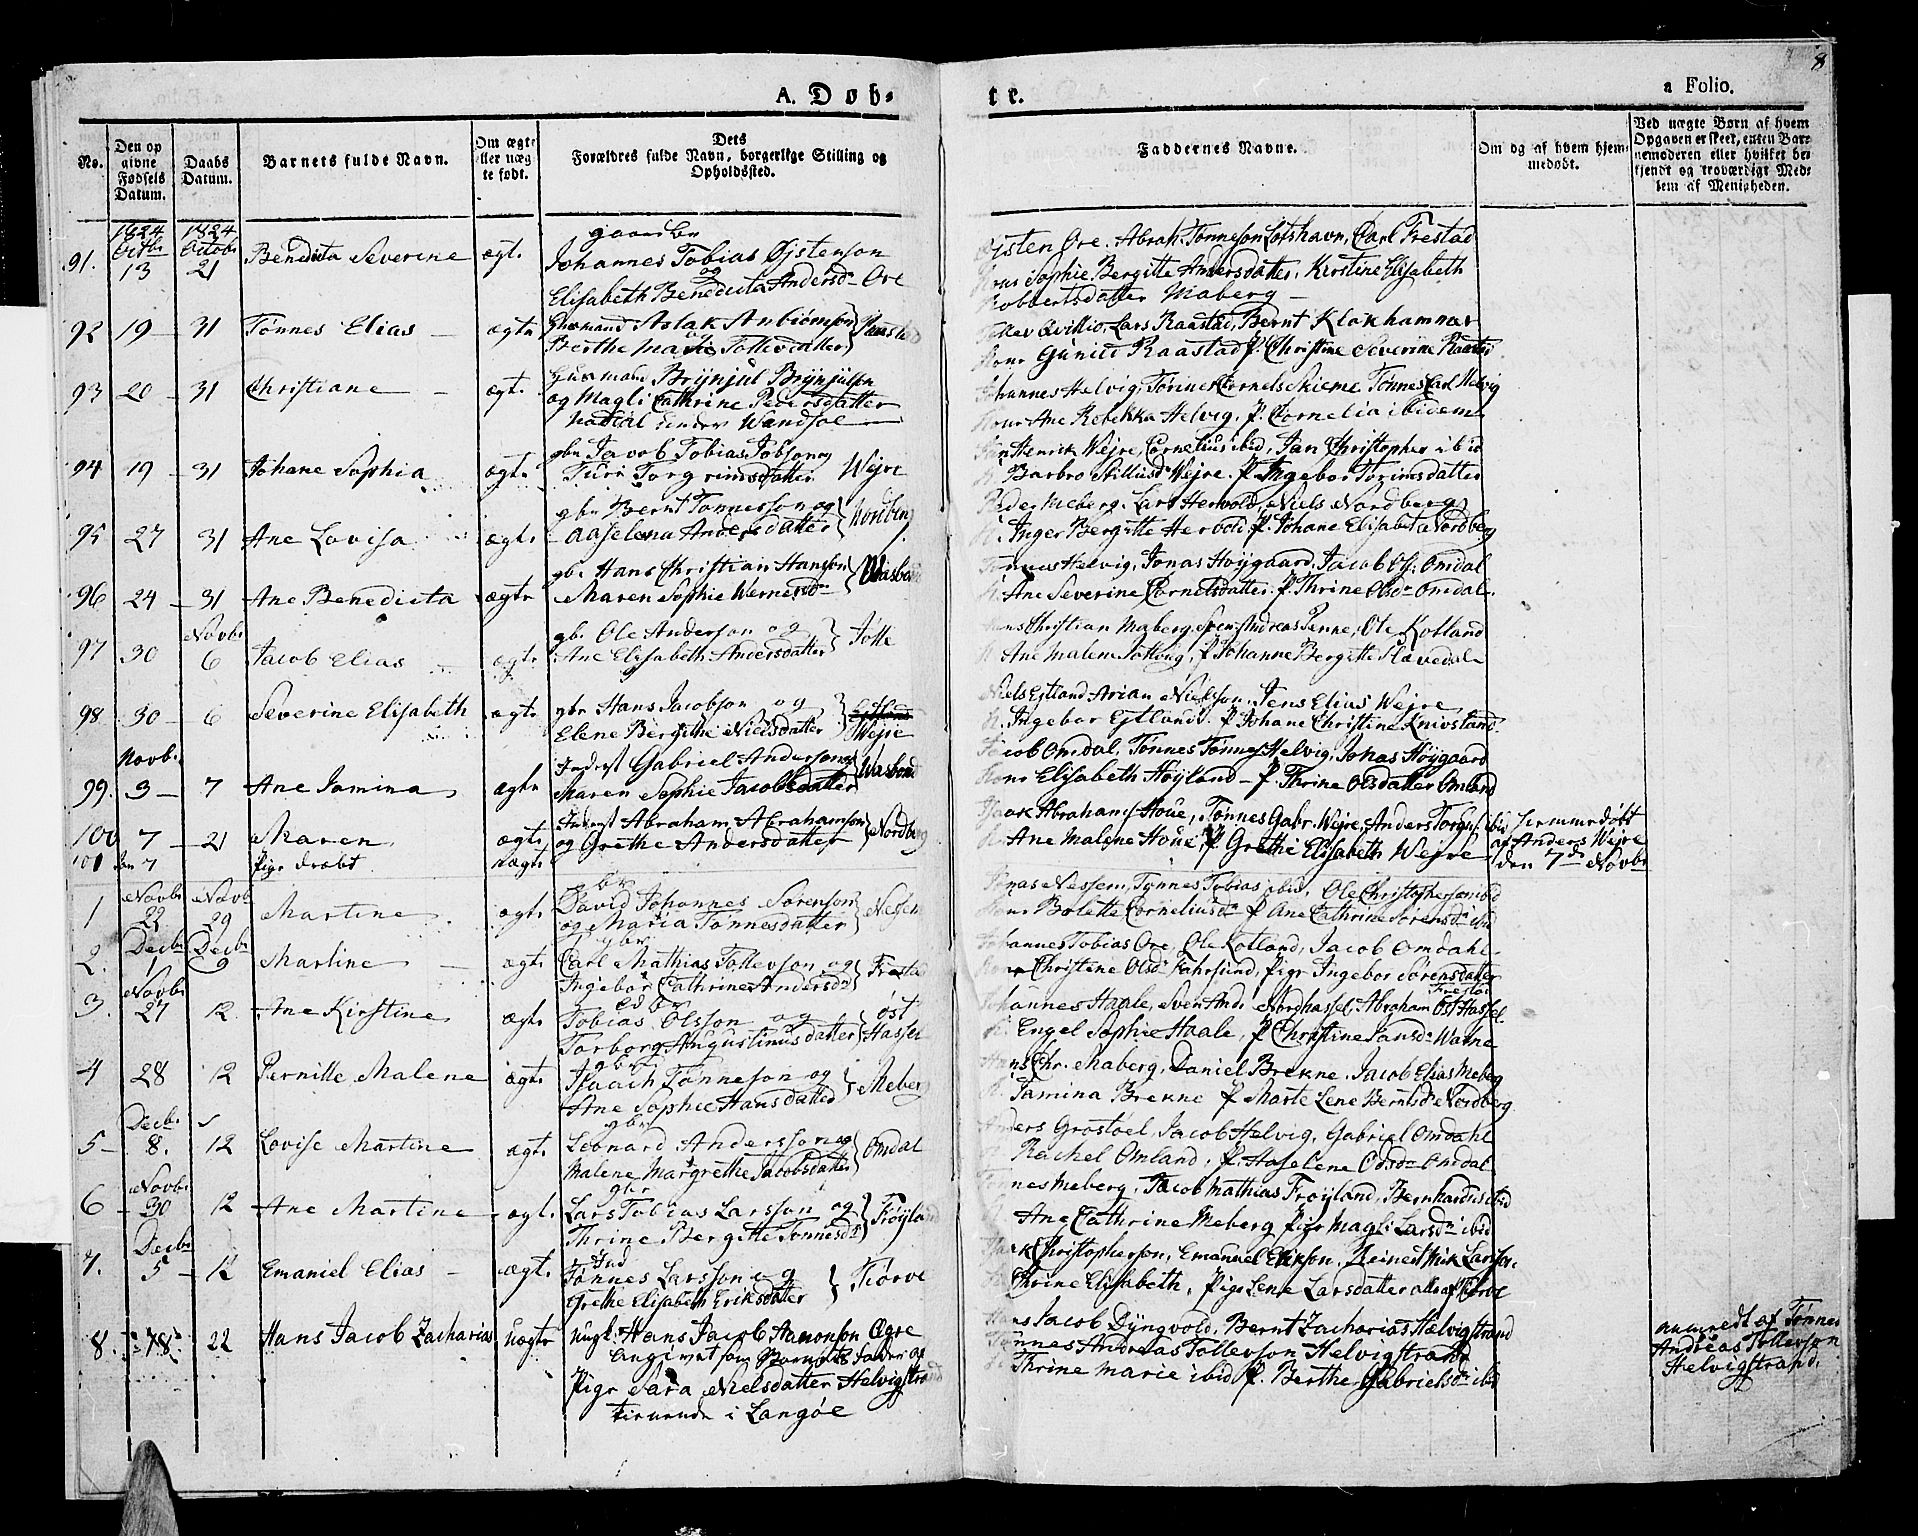 8
A. Døb-
te.
a Folio.
No.
Den op
givne
Fødsels
Datum.
Daabs
Datum.
Barnets fulde Navn.
Om ægte
eller uæg
te født.
Dets
Forældres fulde Navn, borgerlige Stilling og
Opholdssted.
Faddernes Navne.
Om og af hvem hjem-
medøbt.
Ved uægte Børn af hvem
Opgaven er skeet, enten Bar-
nemoderen eller hvilket be-
kjendt og troværdigt Med-
lem af Menigheden.
1824
1824
91.
Octbr
13
Octobr
21
Bendicta Severine
ægt.
gaardbr
Johannes Tobias Øjstenson
og
Elisabeth Benedicta Andersd. Ore
Øjsten Ore, Abrah. Tønneson Lotshavn, Carl Frestad
Kone Sophie Bergitte Andersdatter, Kirstine Elisabeth
Robbertsdatter Maberg
92
19
31
Tønnes Elias
ægte
Huusmand Aslak Anbiornson
Berthe Marie Tollevdatter
Raastad
Lars Raastad, Bernt Klokhammer
Kone Gunild Raastad P. Christine Severine Raastad
93
20
31
Christiane
ægt.
Huusmand Brynjul Brynjulsen
og Magli Cathrine Pedersdatter
under Wandsøe
Johannes Helvig, Tønnes Cornels Skieme Tønnes Carl Helvig
Kone Ane Rebekka Helvig, P. Cornelia ibidem
94
19
31
Johane Sophia
ægte
gbr. Jacob Tobias Jobson og
Turi Torgrimsdatter
Wejre
Jan Henrik Wejre, Cornelius ibid, Jan Christopher ibid
K. Barbro Wejre. P. Ingebor Torimsdatter
95
27
31
Ane Lovisa
ægt.
gbr. Bernt Tønnesson og
Aaselena Andersdatter
Nordberg
Peder Meberg, Lars Hervold, Niels Nordberg
K. Inger Bergitte Hervold P. Johane Elisabet Nordberg
96
24
31
Ane Benedicta
ægte
gbr. Hans Christian Hanson
Maren Sophie Wernersd.
Tønnes Helvig, Jonas Höygaard, Jacob Ols. Omdal
K. Ane Severine Cornelsdatter. P. Thrine Olsd. Omdal.
97
30
Novbr
6
Jacob Elias
ægt.
gbr. Ole Anderson og
Ane Elisabeth Andersdatter
Jølle
Hans Christian Maberg, Svenstudreas Penne, Ole Kotland
K. Ane Malene P. Johanne Bergitte
98
30
6
Severine Elisabeth
ægte
gbr. Hans Jacobson og
Elene Bergithe Nielsdatter
Ejtland
Wejre
Niels Ejtland, Arian Nielsson, Jens Elias Wejre
K. Ingebor Ejtland. P. Johane Christine Knivsland
Novbr.
99.
3
7
Ane Jamina
ægte
Inderst Gabriel Anderson og
Maren Sophie Jacobsdatter
Wasbond
Jacob Omdal, Tønnes Tønnes Helvig, Jonas Höygaard
Kone Elisabeth Höyland P. Thrine Olsdatter Omland
100
7
21
Maren
ægte
Inderst Abraham Abrahamson
og Grethe Andersdatter
Nordberg
Isaak Abrahams Houe, Tønnes Gabr. Wejre, Anders Torgus. ibid
K. Ane Malene Houe, P. Grethe Elisabeth Wejre
Hiemmedøbt
af Anders Wejre
den 7de Novbr
101
den 7
Pige Drøbt
uægte
1
Novbr
22
Novb
29
Martine
ægt.
gbr
David Johannes Sörenson
og Maria Tønnesdatter
Nessem
Jonas Nessem, Tønnes Tobias ibid, Ole Christopherson ibid
Kone Bolette Corneliusd. P. Ane Cathrine Sörensd. ibid
2.
Decbr
1
Decbr
9
Martine
ægt.
gbr
Carl Mathias Tollevson og
Ingebor Cathrine Andersd.
Frestad
Johannes Tobias Ore, Ole Kotland, Jacob Omdahl
Kone Christene Olsd. Fahrsund, Pige Ingebor Sörensdatter
Frestad
3.
Novbr
27
12
Ane Kirstine
ægt.
gbr
Tobias Olsson og
Torborg Augustinusdatter
Öst
Hassel
Johannes Haale, Sven And. Nordhassel, Abraham Öst Hassel.
K. Engel Sophie Haale, P. Christine Jansd. Watne
4
28
12
Pernille Malene
ægte
gbr
Isaach Tønneson og
Ane Sophie Hansdatter
Meberg
Hans Chr. Maberg, Daniel Brekne, Jacob Elias Meberg
K. Jamina Brekne P. Marte Lene Berntsd. Nordberg
5
Decbr
8.
12
Lovise Martine
ægt.
gbr
Leonard Andersson og
Malene Margrethe Jacobsdatter
Omdal
Anders Grostøel, Jacob Helvig, Gabriel Omdahl
Rachel Omland, P. Haselene Odsd. Omdal
6
Novbr
30
12
Ane Martine
ægt.
gbr
Lars Tobias Larsson og
Thrine Bergitte Tønnesd.
Fröyland
Tønnes Meberg, Jacob Mathias Fröyland, Bernhardus ibid
K. Ane Cathrine Meberg Pige Magli Larsd. ibid
7.
Decbr
5
12
Emaniel Elias
ægt.
Ind
Tønnes Larsson og
Grethe Elisabeth Eriksdatter
Tiørve
Isaak Christopherson, Emanuel Erikson, Larsson.
Thrine Elisabeth, Pige Lene Larsdatter alle af Tiørve
8.
22
Hans Jacob Zacharias
uægte
Ungk. Hans Jacob Aanonson Øgre
angivet som Barnets Fader og
Pige Sara Nielsdatter Helvigstrand
tienende i Langøe
Hans Jacob Dyngvold, Bernt Zacharias Helvigstrand
Tønnes Andreas Tollevson Helvigstrand
Thrine Marie ibid P. Berthe Gabrielsd. ibid
anmeldt af Tønnes
Andreas Tollevson
Helvigstrand.